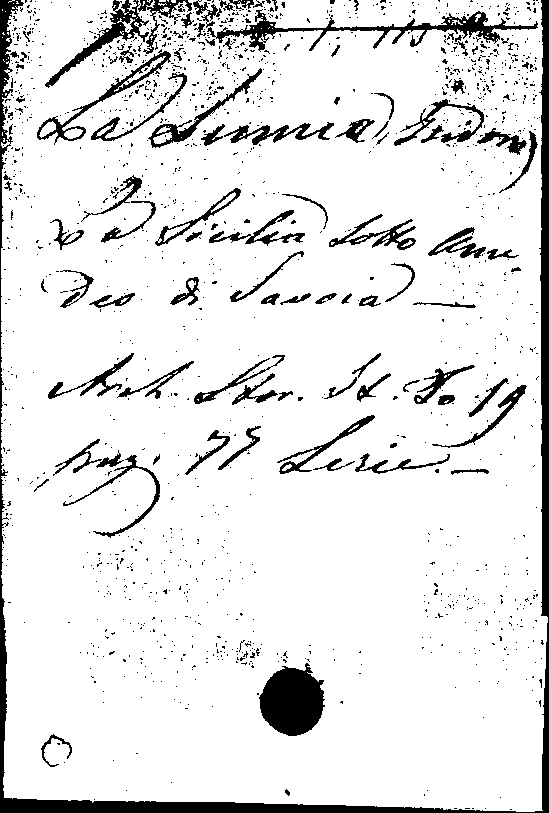 La Lumia, Isidoro
La Sicilia sotto Ame-
deo di Savoia —
Arch. Stor. It. To 19
pag. 77 Serie. —